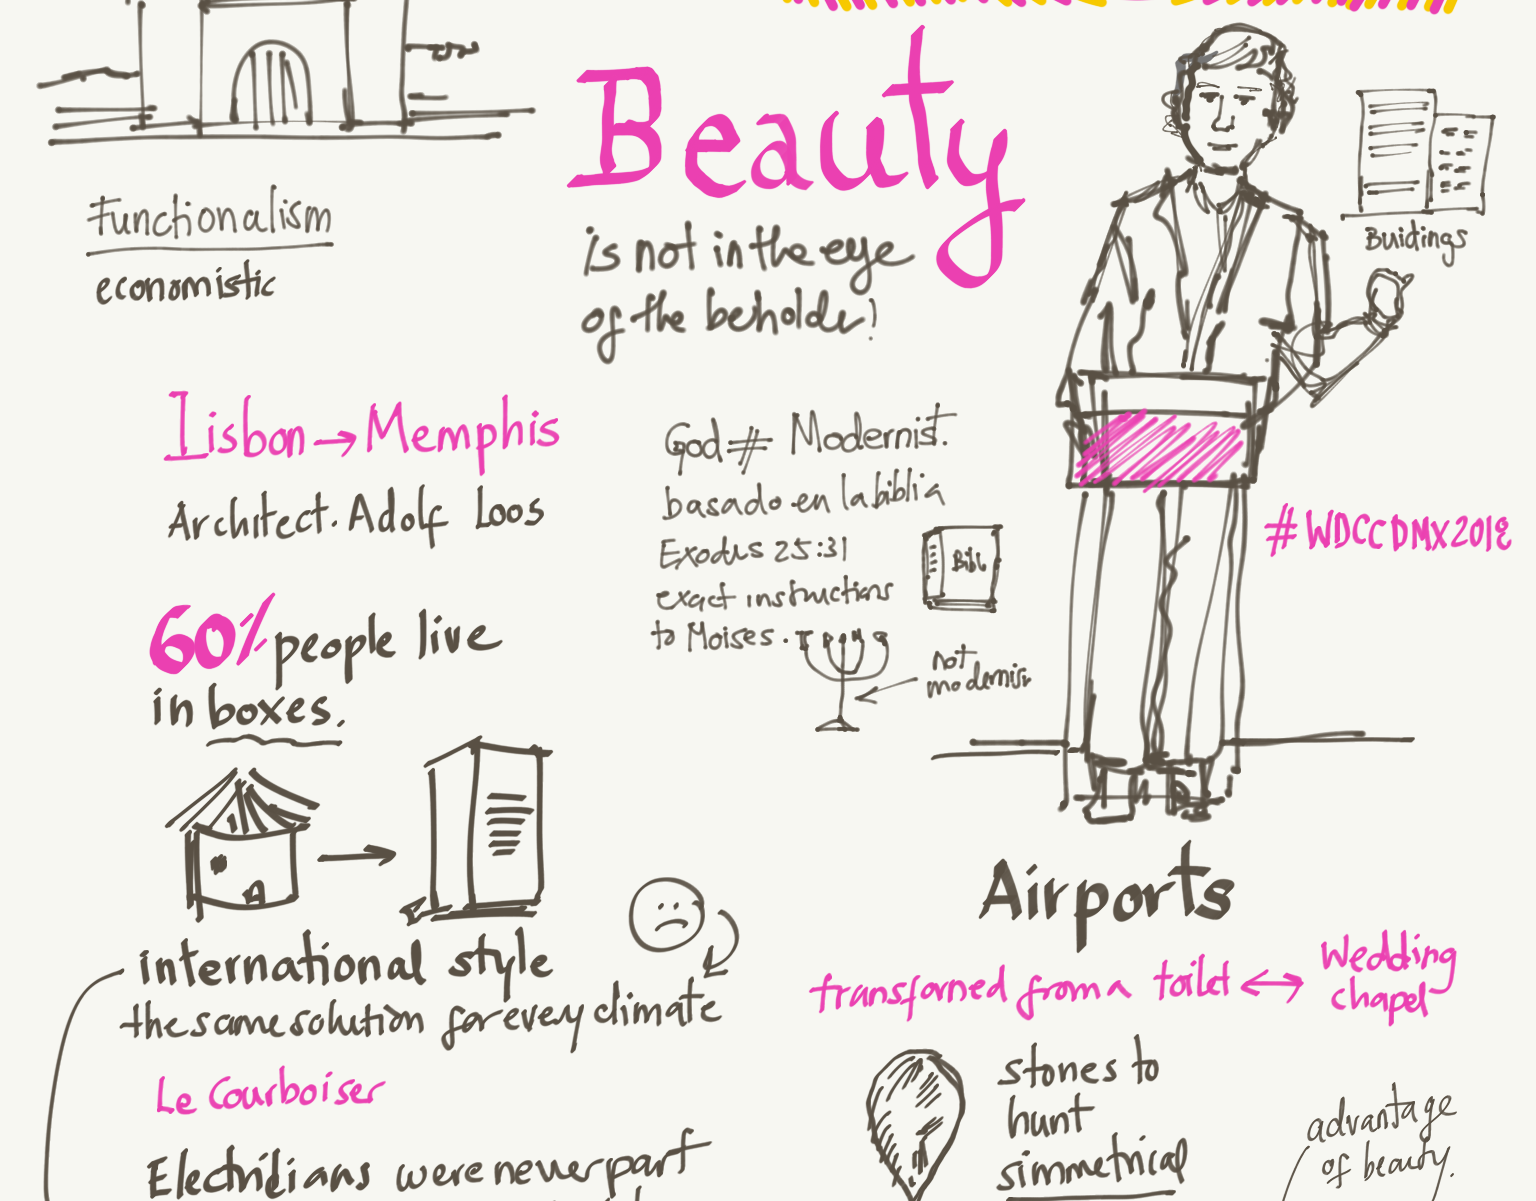 Functionalism
economistic
Beauty
is not in the eye
of the beholder!
Buidings
Lisbon → Memphis
Architect. Adolf Loos
God ≠ Modernist.
basado en la biblia
Exodus 25:31
exact instructions
to Moises.
Bibl
not
modernist
#WDCCDMX2018
60% people live
in boxes.
international style
the same solution for every climate
Le Courboiser
were never part
Airports
transformed from a toilet ↔ Wedding
chapel
stones to
hunt
simmetrical
advantage
of beauty.